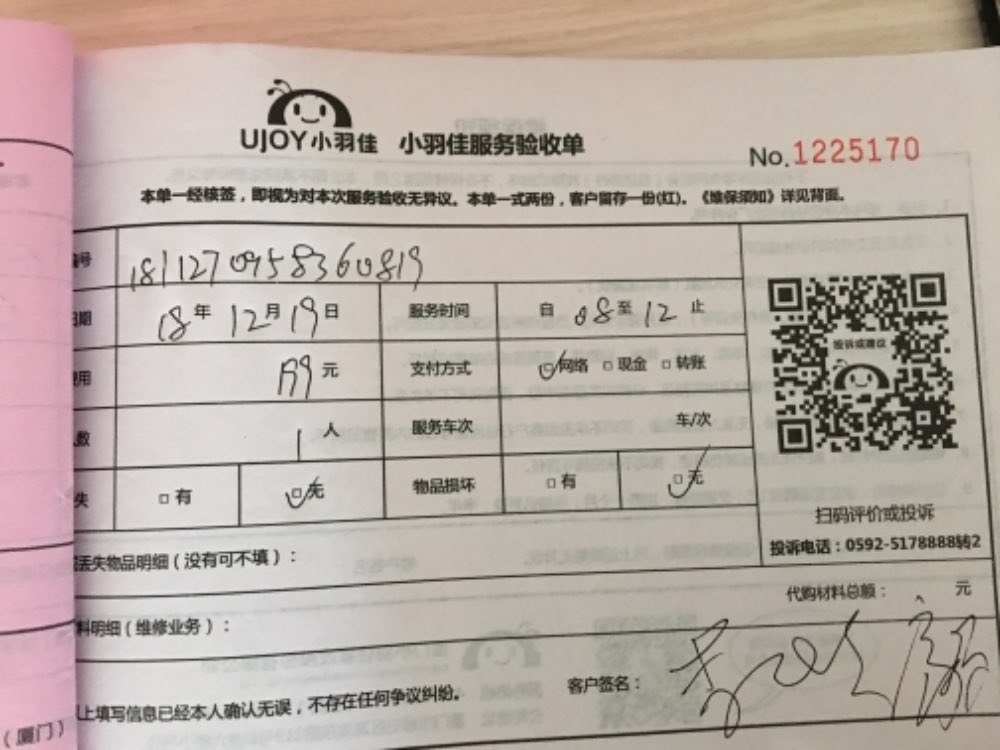 UJOY小羽佳 小羽佳服务验收单
No.1225170
本单一经核签，即视为对本次服务验收无异议。本单一式两份，客户留存一份(红)。《维保须知》详见背面。
号 1811270958360819
期 18年12月19日 服务时间 自08至12止
用 199元 支付方式 网络 现金 转账
数 1人 服务车次 车/次
失 有 无 物品损坏 有 无
投诉或建议
扫码评价或投诉
投诉电话：0592-5178888转2
丢失物品明细（没有可不填）：
代购材料总额： 元
料明细（维修业务）：
客户签名：
上填写信息已经本人确认无误，不存在任何争议纠纷。
（厦门）